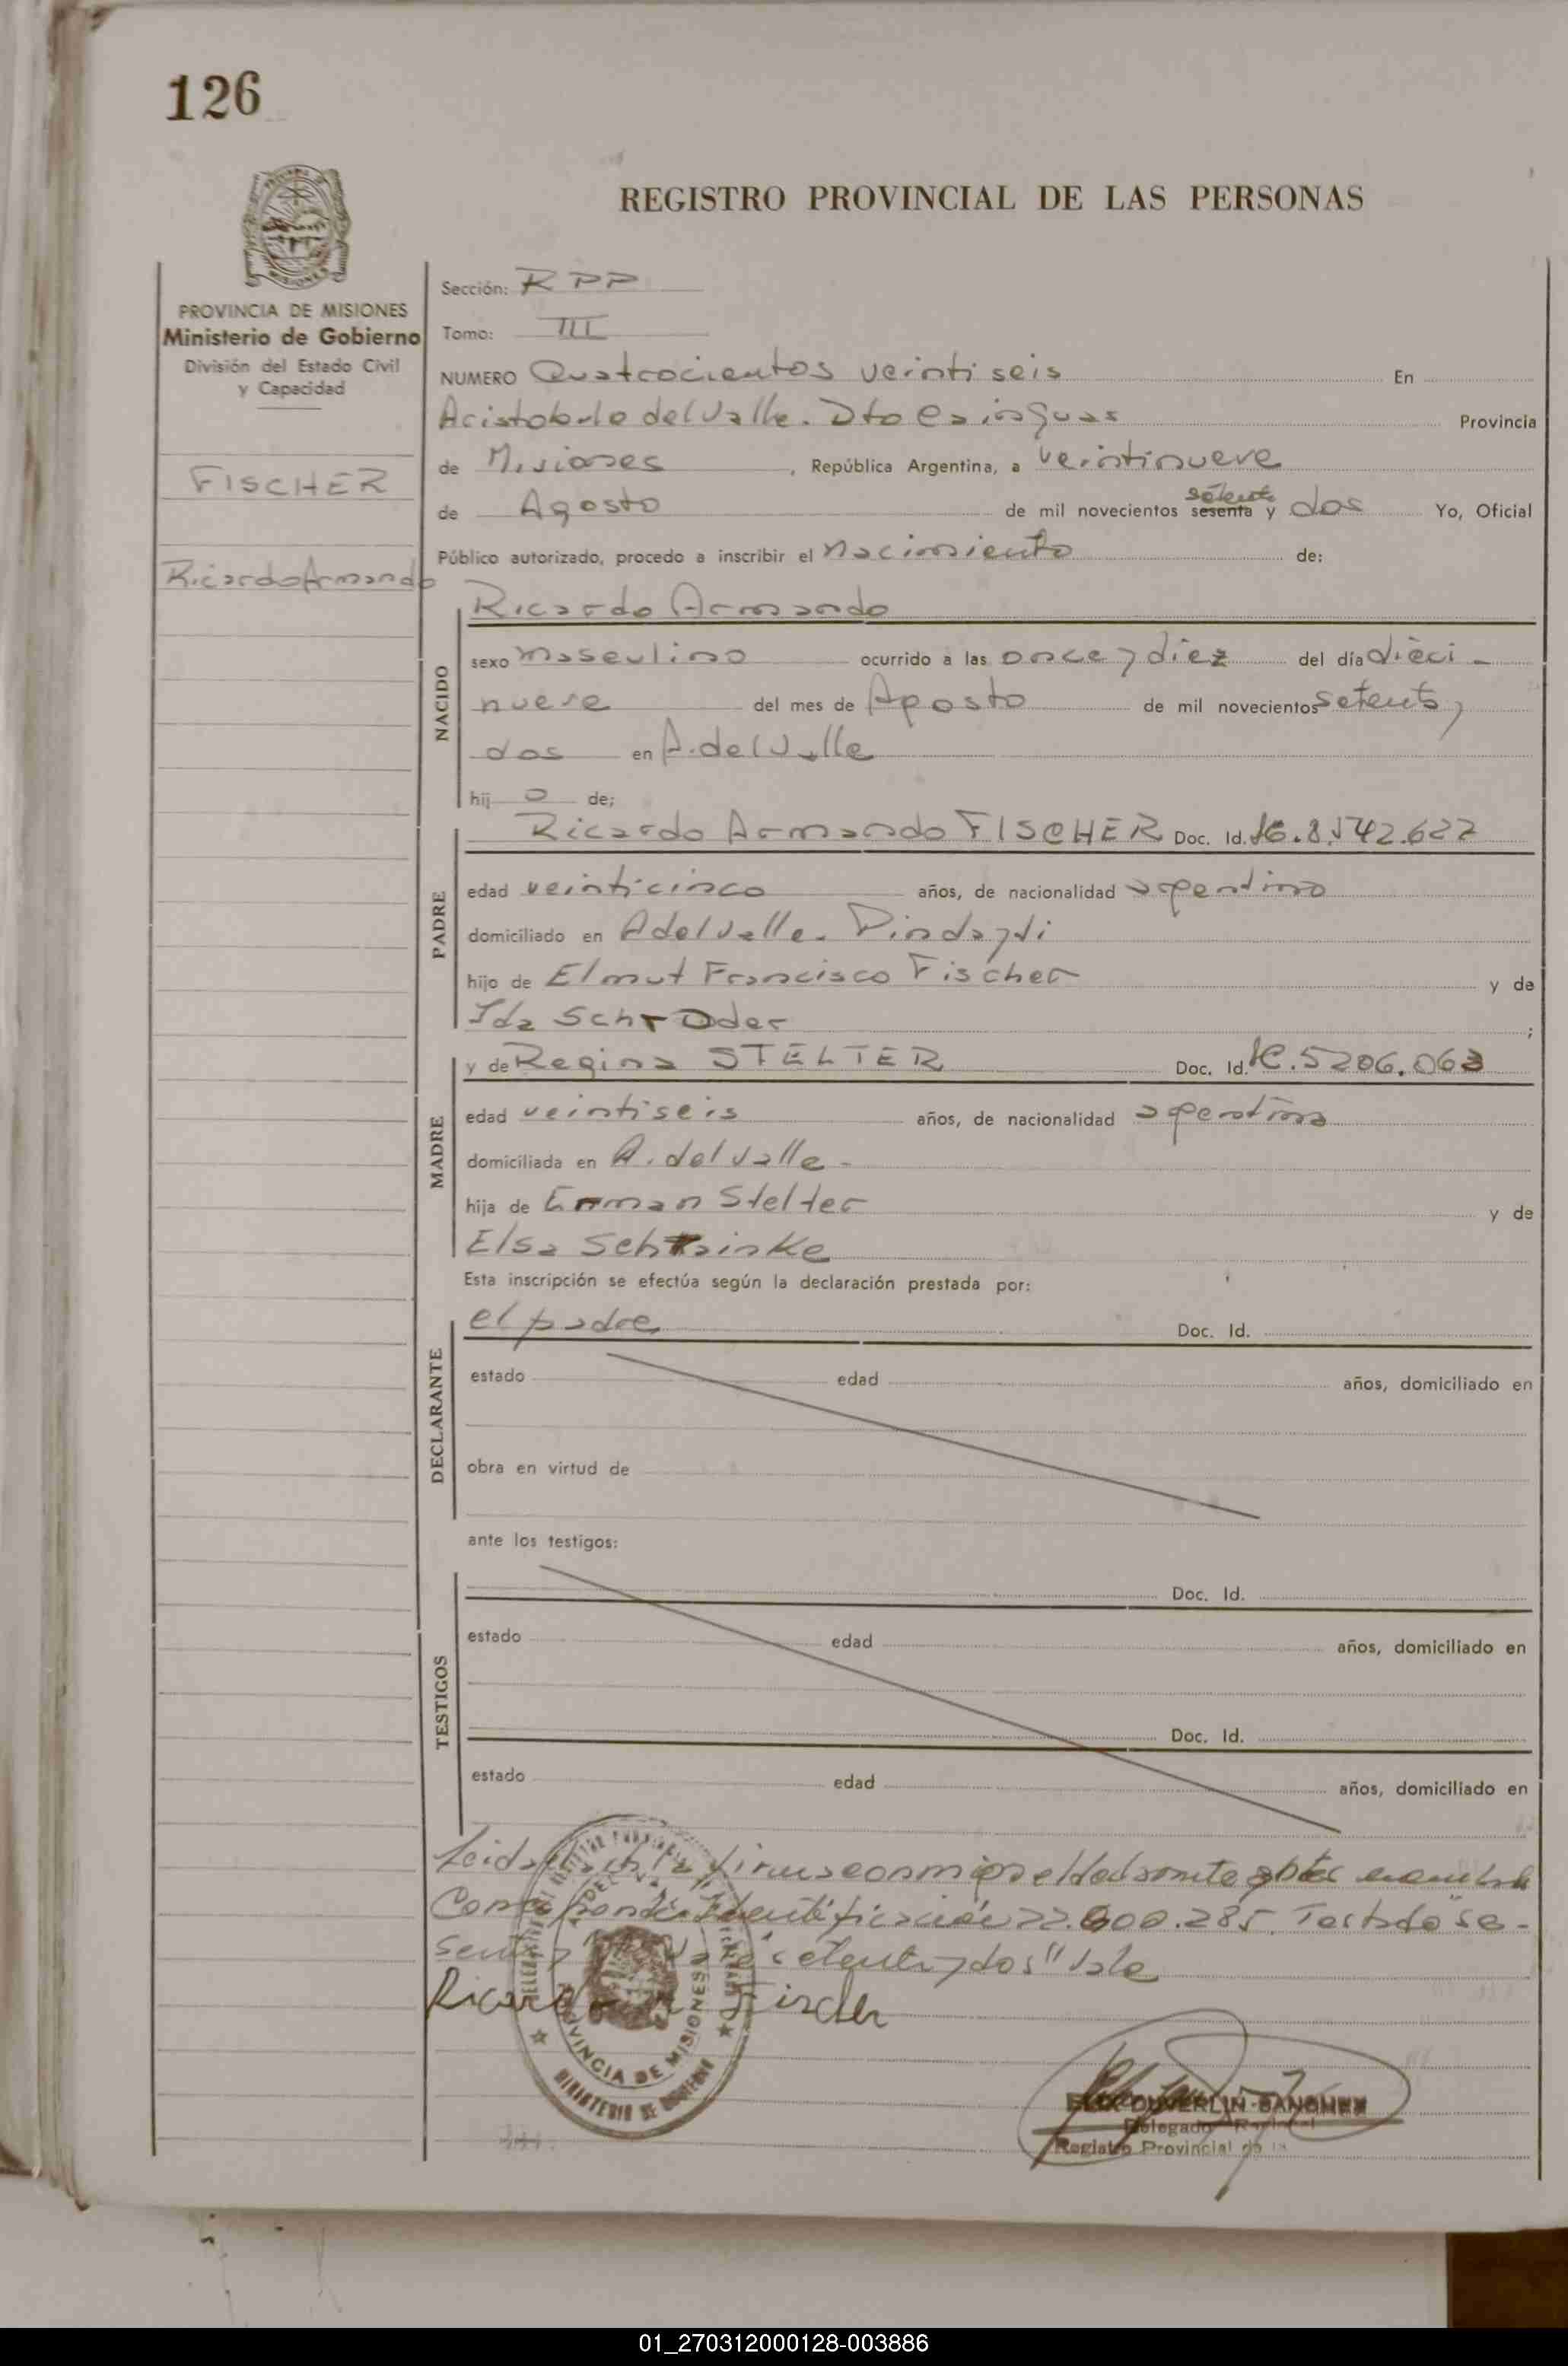 126
REGISTRO PROVINCIAL DE LAS PERSONAS
PROVINCIA DE MISIONES
Ministerio de Gobierno
División del Estado Civil
y Capacidad
FISCHER
Ricardo Armando
Sección: RPP
Tomo: III
NUMERO Quatrocientos veinti seis En
Aristobulo del Valle. Dto Cainguas Provincia
de Misiones, República Argentina, a veintinueve
de Agosto de mil novecientos sesenta setenta y dos Yo, Oficial
Público autorizado, procedo a inscribir el nacimiento de:
NACIDO
Ricardo Armando
sexo masculino ocurrido a las once y diez del día dieci-
nueve del mes de Agosto de mil novecientos setenta y
dos en A. del Valle
hij o de;
PADRE
Ricardo Armando FISCHER Doc. Id.
edad veinticinco años, de nacionalidad argentino
domiciliado en A del Valle. Pindayti
hijo de Elmut Francisco Fischer y de
Ida Schroder ;
MADRE
y de Regina STELTER Doc. Id. 5206.063
edad veintiseis años, de nacionalidad argentina
domiciliada en A. del Valle-
hija de Erman Stelter y de
Elsa
Esta inscripción se efectúa según la declaración prestada por:
DECLARANTE
el padre Doc. Id.
estado edad años, domiciliado en
obra en virtud de
ante los testigos:
TESTIGOS
Doc. Id.
estado edad años, domiciliado en
Doc. Id.
estado edad años, domiciliado en
Leida el acta la firma conmigo el
Identificación 22.600.285. Testado "se-
senta y setenta y dos" Vale
Ricardo A. Fischer
PROVINCIA DE MISIONES
MINISTERIO DE GOBIERNO
ELIX DUVERLIN SANCHEZ
Delegado
Registro Provincial de
01_270312000128-003886